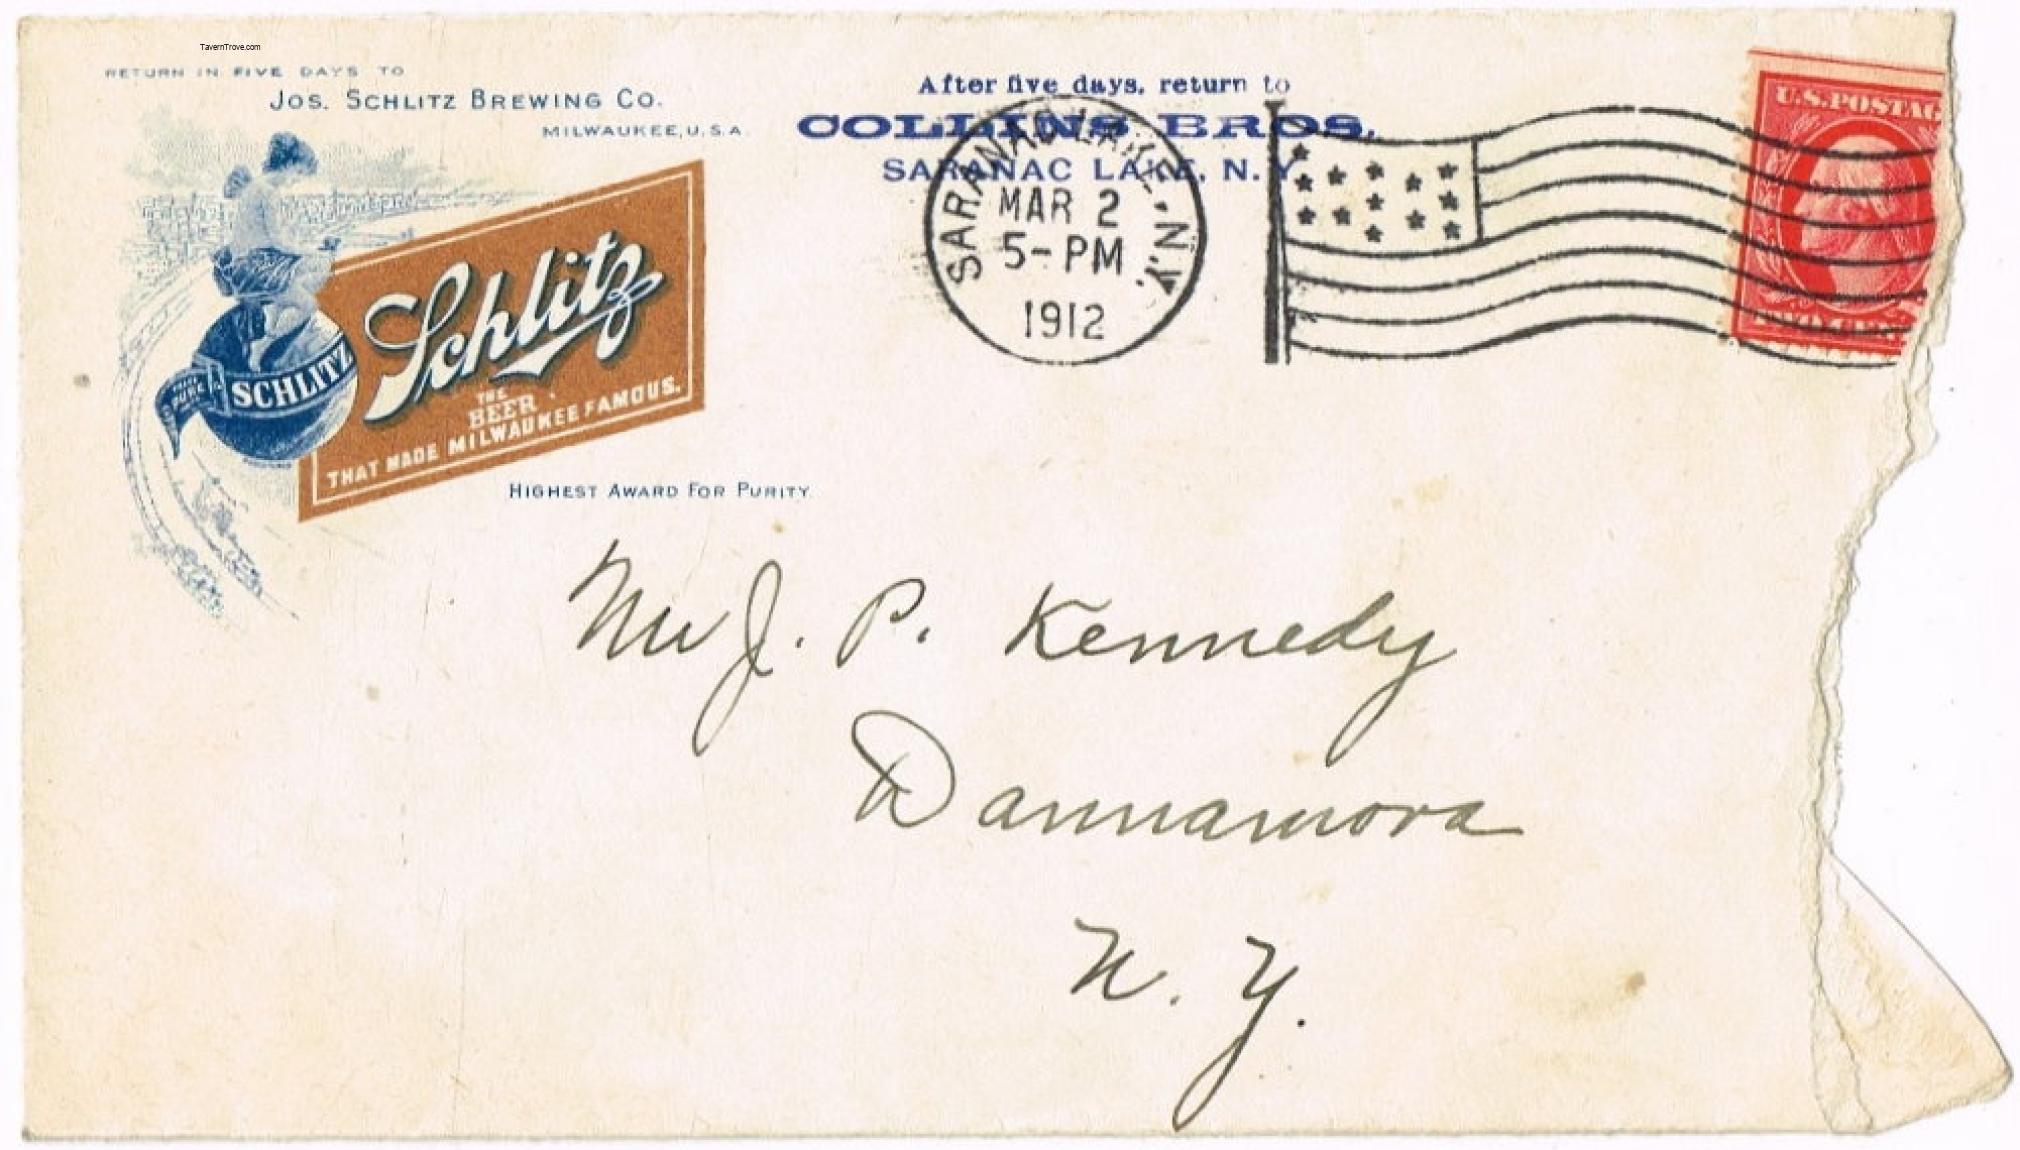 TavernTrove.com
RETURN IN FIVE DAYS TO
JOS. SCHLITZ BREWING CO.
MILWAUKEE, U.S.A.
Schlitz
THE
BEER
THAT MADE MILWAUKEE FAMOUS.
PURE
SCHLITZ
HIGHEST AWARD FOR PURITY.
After five days, return to
COLLINS BROS.
SARANAC LAKE, N.Y.
SARANAC LAKE, N.Y.
MAR 2
5-PM
1912
U.S.POSTAG
Mr J. P. Kennedy
Dannamora
N. Y.